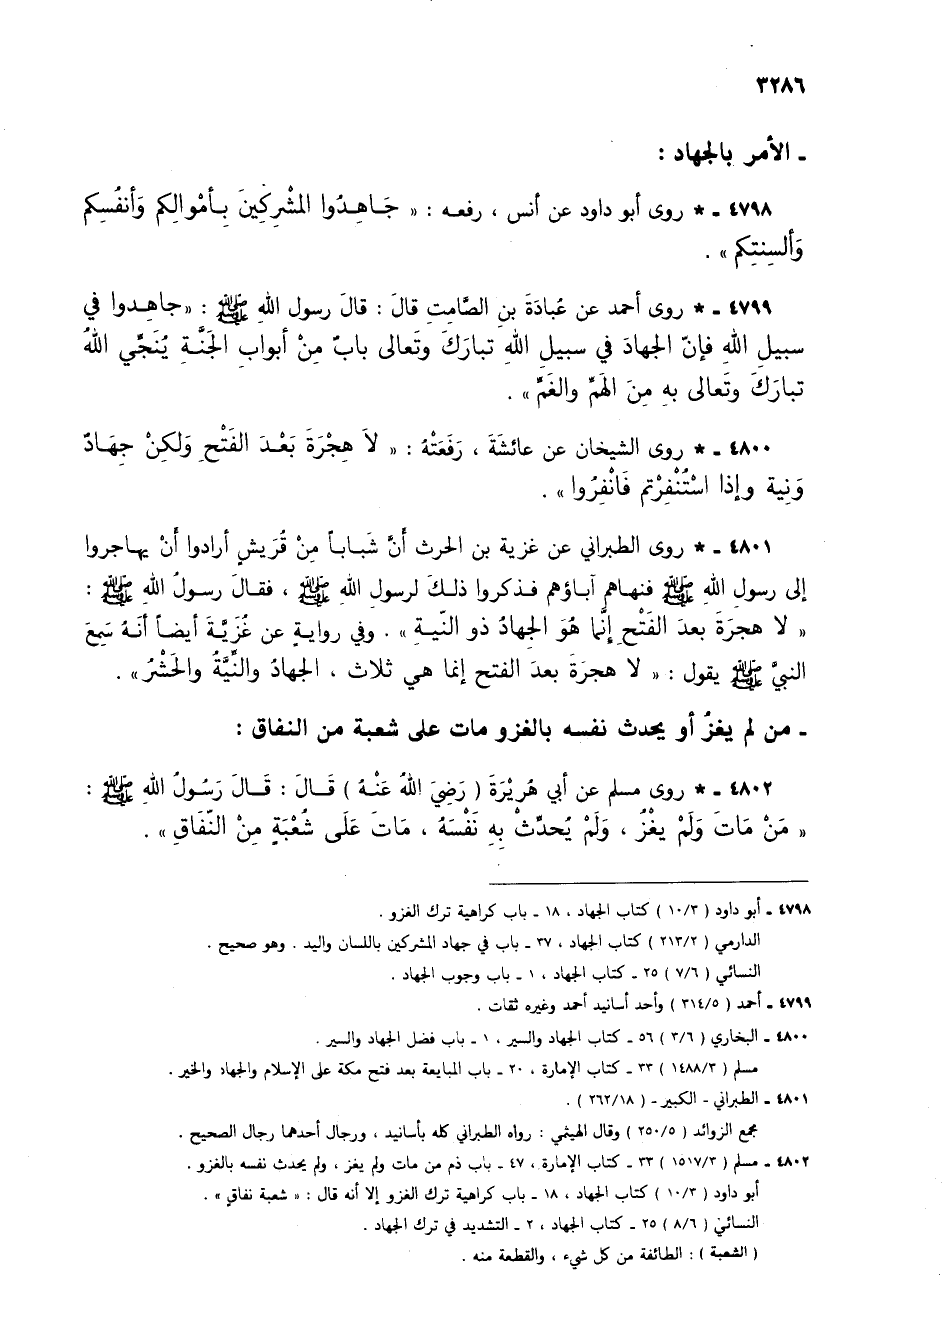 ٣٢٨٦
ـ الأمر بالجهاد :
٤٧٩٨ ـ * روى أبو داود عن أنس ، رفعه : « جَاهِدُوا المُشْرِكِينَ بِأَمْوالِكم وَأَنفُسِكم
وَأَلسِنتِكم » .
٤٧٩٩ ـ * روى أحمد عن عُبادَةَ بنِ الصَّامِتِ قالَ : قالَ رسول اللهِ ﷺ : «جاهِدوا في
سبيلِ اللهِ فإنّ الجهادَ في سبيلِ اللهِ تبارَكَ وتَعالى بابٌ مِنْ أبوابِ الجَنَّـةِ يُنَجِّي اللهُ
تبارَكَ وتَعالى بهِ مِنَ الهَمِّ والغَمِّ» .
٤٨٠٠ ـ * روى الشيخان عن عائشَةَ ، رَفَعَتْهُ : « لاَ هِجْرَةَ بَعْدَ الفَتْحِ وَلكِنْ جِهَادٌ
وَنِية وإذا اسْتُنْفِرْتم فَانْفِرُوا» .
٤٨٠١ ـ * روى الطبراني عن غزية بن الحرث أَنَّ شَبـاباً مِنْ قُرَيشٍ أرادوا أَنْ يهـاجروا
إلى رسول اللهِ ﷺ فنهـاهم آبـاؤهم فـذكروا ذلـكَ لرسولِ اللهِ ﷺ ، فقـالَ رسـولُ اللهِ ﷺ :
« لا هجرَةَ بعدَ الفَتْحِ إنَّما هُوَ الجهادُ ذو النّيـة » . وفي روايـةٍ عن غَزِيَّـةَ أيضـاً أنـهُ سَمِعَ
النبيَّ ﷺ يقول : « لا هجرَةَ بعدَ الفتح إنما هي ثلاث ، الجهادُ والنِّيَّةُ والحَشْرُ» .
ـ من لم يغزُ أو يحدث نفسه بالغزو مات على شعبة من النفاق :
٤٨٠٢ ـ * روى مسلم عن أبي هُرَيْرَةَ ( رَضِيَ اللهُ عَنْـهُ ) قَـالَ : قَـالَ رَسُـولُ اللهِ ﷺ :
« مَنْ مَاتَ وَلَمْ يَغْزُ ، وَلَمْ يُحَدِّثْ بِهِ نَفْسَهُ ، مَاتَ عَلَى شُعْبَةٍ مِنْ النِّفَاقِ» .
٤٧٩٨ ـ أبو داود ( ١٠/٣ ) كتاب الجهاد ، ١٨ ـ باب كراهية ترك الغزو .
الدارمي ( ٢١٣/٢ ) كتاب الجهاد ، ٣٧ ـ باب في جهاد المشركين باللسان واليد . وهو صحيح .
النسائي ( ٧/٦ ) ٢٥ ـ كتاب الجهاد ، ١ ـ باب وجوب الجهاد .
٤٧٩٩ ـ أحمد ( ٣١٤/٥ ) وأحد أسانيد أحمد وغيره ثقات .
٤٨٠٠ ـ البخاري ( ٣/٦ ) ٥٦ ـ كتاب الجهاد والسير ، ١ ـ باب فضل الجهاد والسير .
مسلم ( ١٤٨٨/٣ ) ٣٣ ـ كتاب الإمارة ، ٢٠ ـ باب المبايعة بعد فتح مكة على الإسلام والجهاد والخير .
٤٨٠١ ـ الطبراني - الكبير - ( ٢٦٢/١٨ ) .
مجمع الزوائد ( ٢٥٠/٥ ) وقال الهيثمي : رواه الطبراني كله بأسانيد ، ورجال أحدهما رجال الصحيح .
٤٨٠٢ ـ مسلم ( ١٥١٧/٣ ) ٣٣ ـ كتاب الإمارة ، ٤٧ ـ باب ذم من مات ولم يغز ، ولم يحدث نفسه بالغزو .
أبو داود ( ١٠/٣ ) كتاب الجهاد ، ١٨ ـ باب كراهية ترك الغزو إلا أنه قال : « شعبة نفاق » .
النسائي ( ٨/٦ ) ٢٥ ـ كتاب الجهاد ، ٢ ـ التشديد في ترك الجهاد .
( الشعبة ) : الطائفة من كل شيء ، والقطعة منه .